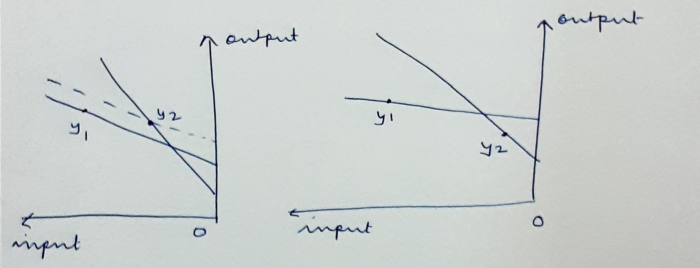 output
y2
y1
input
0
output
y1
y2
input
0